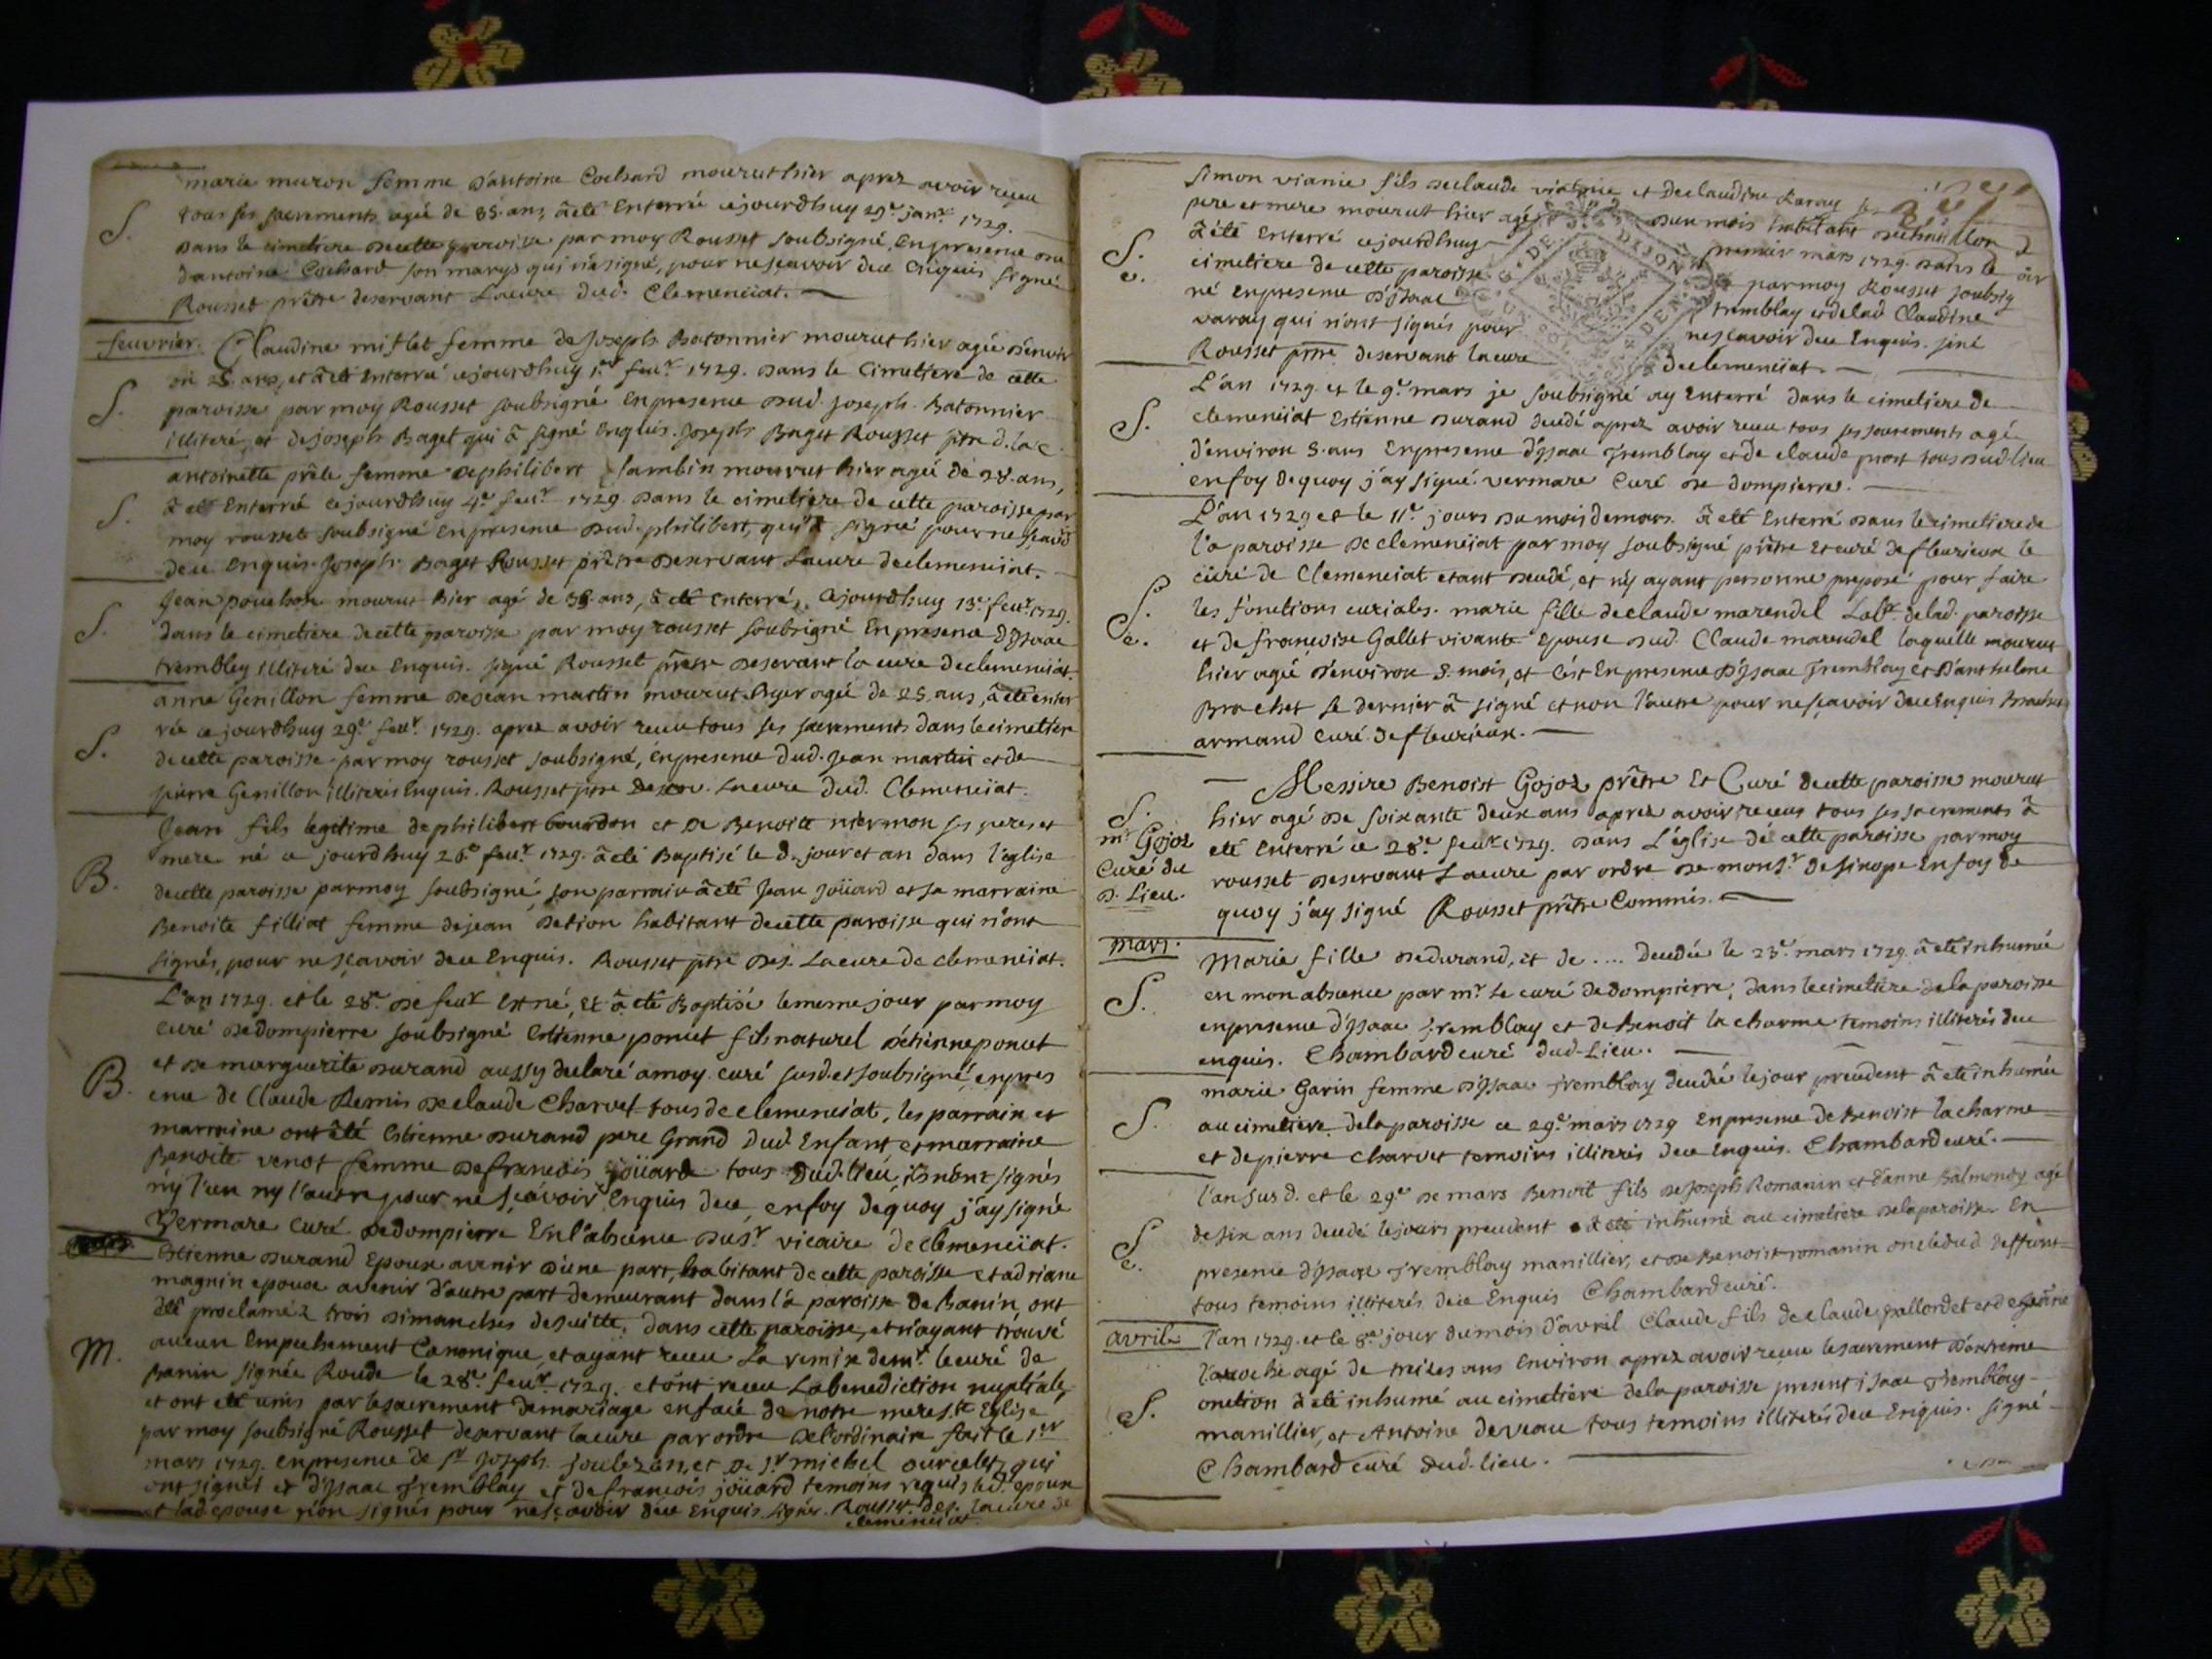 marie muron femme d'antoine Cochard mourut hier aprez avoir receu
S. tous ses sacrements agée de 35. ans, à été Enterré cejourdhuy 29e janr. 1729.
dans le cimetiere de cette parroisse par moy Rousset soubsigné, En presence
d'antoine Cochard son marys qui n'a signé, pour ne scavoir deu Enquis signé
Rousset prêtre deservant Lacure dud. Clemenciat.
feuvrier. Claudine miflet femme de Joseph Batonnier mourut hier agée d'envir
on 25. ans, et à été Enterré cejourdhuy 1er feur. 1729. dans le Cimetiere de cette
S. paroisse par moy Rousset soubsigné En presence dud. joseph. Batonnier
illiteré, et de joseph Baget qui à signé Enquis. Joseph Baget Rousset ptre d. la c.
antoinette prêle femme de philibert Sambin mourut hier agée de 28. ans,
S. à été Enterré cejourdhuy 4e feur. 1729. dans le cimetiere de cette paroisse par
moy rousset soubsigné En presence dud. philibert, qui signé pour ne scavoir
deu Enquis. Joseph Baget Rousset prêtre deservant Lacure de clemenciat.
Jean pouchon mourut hier agé de 38 ans, à été Enterré, cejourdhuy 13e feur. 1729.
S. dans le cimetiere de cette paroisse par moy rousset soubsigné En presence d'Isaac
trembley illiteré deu Enquis. signé Rousset prêtre deservant la cure de clemenciat.
anne Genillon femme de jean martin mourut hyer agée de 25. ans, à été enter
rée ce jourdhuy 29e feur. 1729. aprez avoir receu tous ses sacrements dans le cimetiere
S. de cette paroisse par moy rousset soubsigné, en presence dud. Jean martin et de
pierre Genillon illiterés Enquis. Rousset ptre deserv. Lacure dud. Clemenciat.
Jean fils legitime de philibert bourdon et de Benoite niermon ses peres et
mere né ce jourdhuy 26e feur. 1729. à été Baptisé le d. jour et an dans l'eglise
B. de cette paroisse par moy soubsigné, son parrain à été Jean joüard et sa marraine
Benoite filliat femme de jean detion habitant de cette paroisse qui n'ont
signés, pour ne scavoir deu Enquis. Rousset ptre des. Lacure de clemenciat.
L'an 1729. et le 28e de feur. Est né, et à été Baptisé le meme jour par moy
curé de dompierre soubsigné Estienne poncet fils naturel d'étienne poncet
et de marguerite durand aussy declaré a moy curé susd. et soubsigné, en pres
B. ence de Claude Remis de claude Charvet tous de clemenciat, les parrain et
marraine ont été Estienne durand pere Grand dud. Enfant et marraine
Benoite venot femme de francois joüard tous dud. lieu, ils n'ont signés
ny l'un ny l'autre pour ne scavoir Enquis deu, en foy de quoy j'ay signé
Vermare curé de dompierre En l'absence du sr. vicaire de clemenciat.
Estienne durand Epoux avenir d'une part, habitant de cette paroisse et adriane
magnin epouse avenir d'autre part demeurant dans la paroisse de Banin, ont
été proclamez trois dimanches de suitte, dans cette paroisse, et n'ayant trouvé
M. aucun Empechement Canonique, et ayant receu La remise de mr. le curé de
Banin signée Roude le 28e feur. 1729. et ont receu La benediction nuptiale,
et ont été unis par le sacrement de mariage en face de notre mere ste. Eglise
par moy soubsigné Rousset deservant la cure par ordre de l'ordinaire fait le 1er
mars 1729. en presence de sr. Joseph. soulezan, et de sr. michel ourcelet, qui
ont signés et d'Isaac Tremblay et de francois joüard temoins requis led. epoux
et lad. epouse n'on signés pour ne scavoir deu Enquis. signés. Rousset des. lacure de
clemenciat.
Simon vianie fils de claude vianie et de claudine Raray ses
pere et mere mourut hier agé d'un mois habitant de chatillon
S. e. à été Enterré cejourdhuy premier mars 1729. dans le
cimetiere de cette paroisse par moy Rousset soubsig
né En presence d'Isaac tremblay et de lad. Claudine
varay qui n'ont signés pour ne scavoir deu Enquis. siné
Rousset ptre deservant la cure de clemenciat.
L'an 1729. et le 9e mars je soubsigné ay Enterré dans le cimetiere de
S. clemenciat Estienne durand decedé aprez avoir receu tous ses sacrements agé
d'environ 8. ans En presence d'Isaac Tremblay et de claude prost tous dud. lieu
en foy de quoy j'ay signé. vermare Curé de dompierre.
L'an 1729 et le 11e jours du mois de mars. à été Enterré dans le cimetiere de
la paroisse de clemenciat par moy soubsigné prêtre Et curé de fleurieux le
curé de Clemenciat etant decedé, et n'y ayant personne preposé pour faire
S. les fonctions curiales. marie fille de claude marendel Labr. de lad. paroisse
e. et de francoise Gallet vivante Epouse dud. Claude marendel laquelle mourut
hier agée d'environ 8. mois, et c'est En presence d'Isaac Tremblay et d'anthelme
Brachet le dernier à signé et non l'autre pour ne scavoir deu Enquis Brachet
armand curé de fleurieux.
Messire Benoist Gojoz prêtre Et Curé de cette paroisse mourut
S. hier agé de soixante deux ans aprez avoir receus tous ses sacrements à
mr Gojoz été Enterré ce 28e feur. 1729. dans L'église de cette paroisse par moy
Curé du rousset deservant Lacure par ordre de monsr. de sinope En foy de
d. Lieu. quoy j'ay signé Rousset prêtre Commis.
mars. Marie fille de durand, et de .... decedée le 23e mars 1729. à été inhumée
S. en mon absence par mr. le curé de dompierre, dans le cimetiere de la paroisse
en presence d'Isaac Tremblay et de Benoit la charme temoins illiterés deu
enquis. Chambard curé dud-Lieu.
marie Garin femme d'Isaac Tremblay decedée le jour precedent à été inhumée
S. au cimetiere de la paroisse ce 29e mars 1729 En presence de Benoist la charme
et de pierre charvet temoins illiterés deu Enquis. Chambard curé.
l'an susd. et le 29e de mars Benoit fils de joseph Romanin et d'anne Balmondy agé
S. de six ans decedé le jours precedent a été inhumé au cimetiere de la paroisse En
e. presence d'Isaac Tremblay manillier, et de Benoist romanin oncle dud. deffunt
tous temoins illiterés deu Enquis Chambard curé.
avril. l'an 1729. et le 8e jour du mois d'avril Claude fils de claude pallordet et de
laroche agé de treizes ans Environ aprez avoir receu le sacrement d'extreme
S. onction à été inhumé au cimetiere de la paroisse present isaac Tremblay
manillier, et Antoine deveau tous temoins illiterés deu Enquis. signé
Chambard curé dud. lieu.